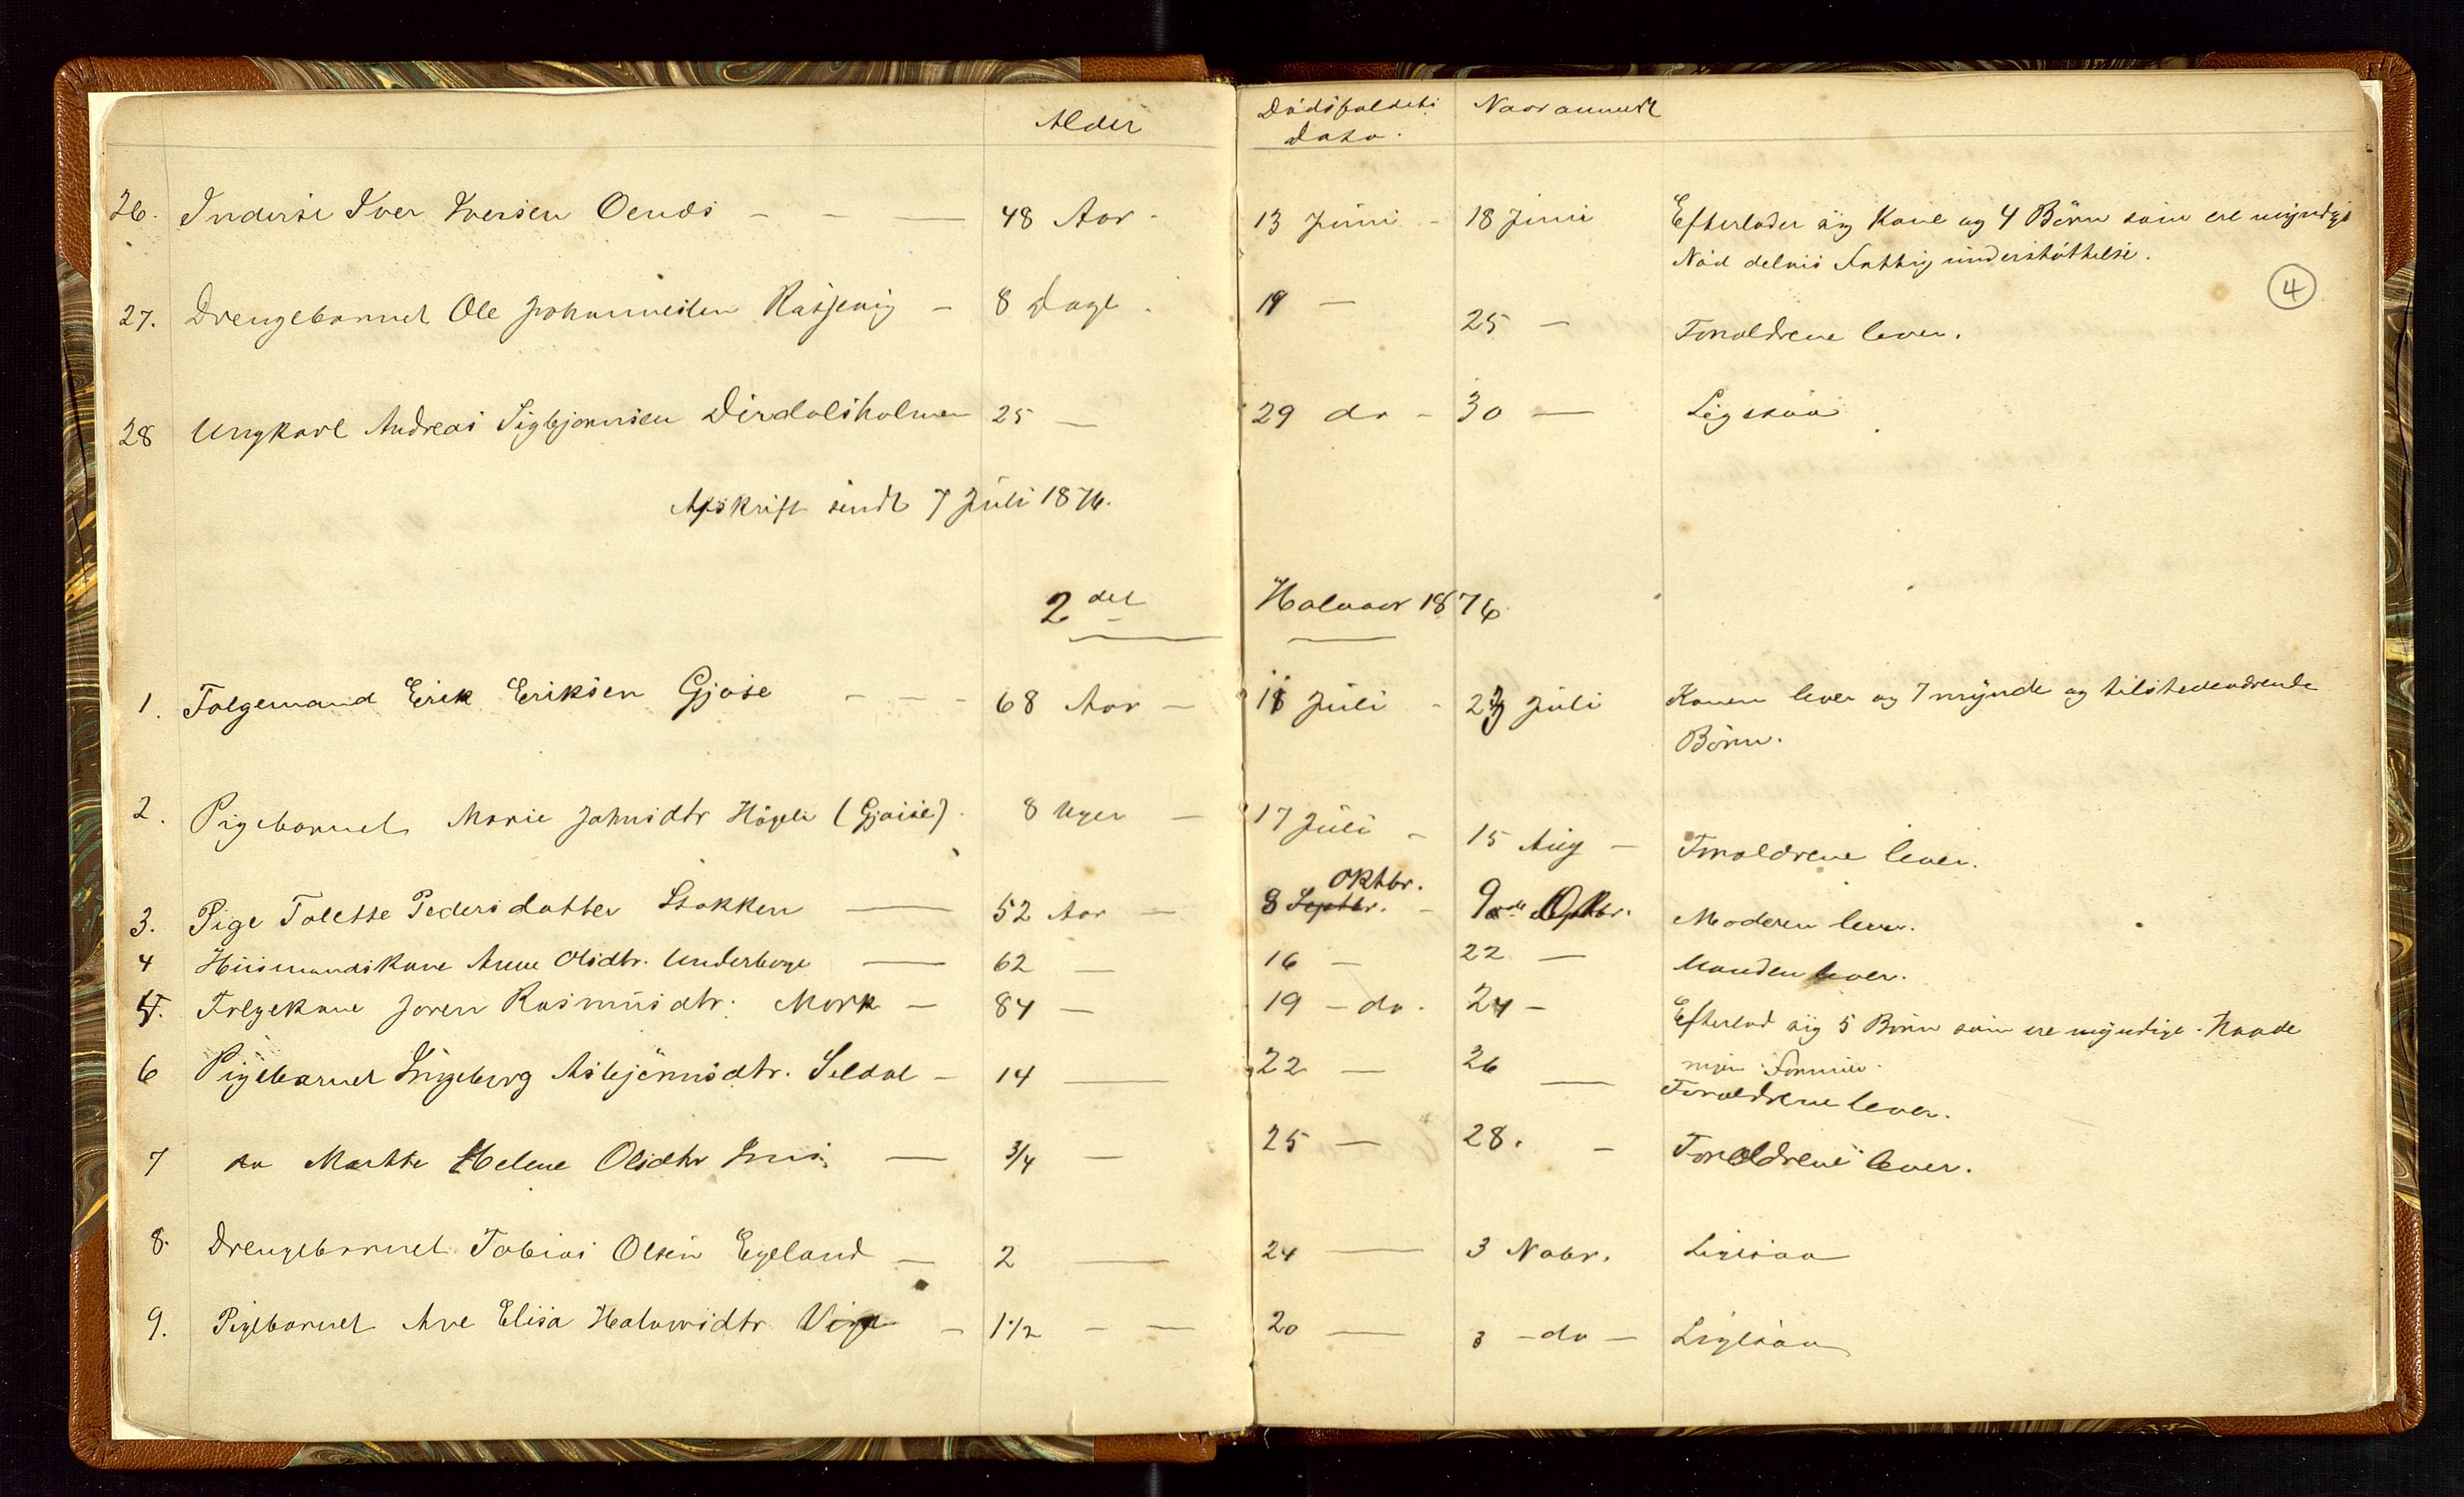 Alder
Dödsfaldets
Dato.
Naar anmeldt
26. Inderst Iver Iversen Oends — — — 48 Aar - 13 Juni - 18 Juni Efterlader sig Kone og 4 Börn som ere myndige
Nöd delvis Fattigunderstöttelse.
4
27. Drengebarnet Ole Johannesen — 8 Dage . 19 — 25 — Forældrene lever.
28 Ungkarl Andreas Sigbjörnsen Dirdalsholmen 25 — 29 do - 30 — Ligesaa
Afskrift sendt 7 Juli 1876.
2det Halvaar 1876
1. Folgemand Erik Eriksen Gjöse - - - 68 Aar — 11 Juli - Juli Konen lever og 7 mynde og tilstedeværende
Börn.
2. Pigebarnet Marie Johnsdtr (Gjöise). 8 Uger — 17 Juli - 15 Aug — Forældrene lever.
Oktbr.
3. Pige Tolette Pedersdatter Stokken — 52 Aar — 8 Septbr. - 9 Moderen lever.
4 Husmandskone Anne Olsdtr. Underberge — 62 — 16 — 22 — Manden lever.
5. Folgekone Joren Rasmusdtr. Mork — 84 — 19 - do. 24 - Efterlod sig 5 Börn som ere myndige. Havde
ingen Formue.
6 Pigebarnet Ingeborg Asbjörnsdtr. Seldal — 14 — 22 — 26 — Forældrene lever.
7 do Marthe Helene Olsdtr — 3/4 — 25 — 28. — Forældrene lever.
8. Drengebarnet Tobias Olsen Egeland — 2 — 24 — 3 Nobr. Ligesaa
9. Pigebarnet Ane Elisa — 1 1/2 — — 20 — 3 - do — Ligesaa